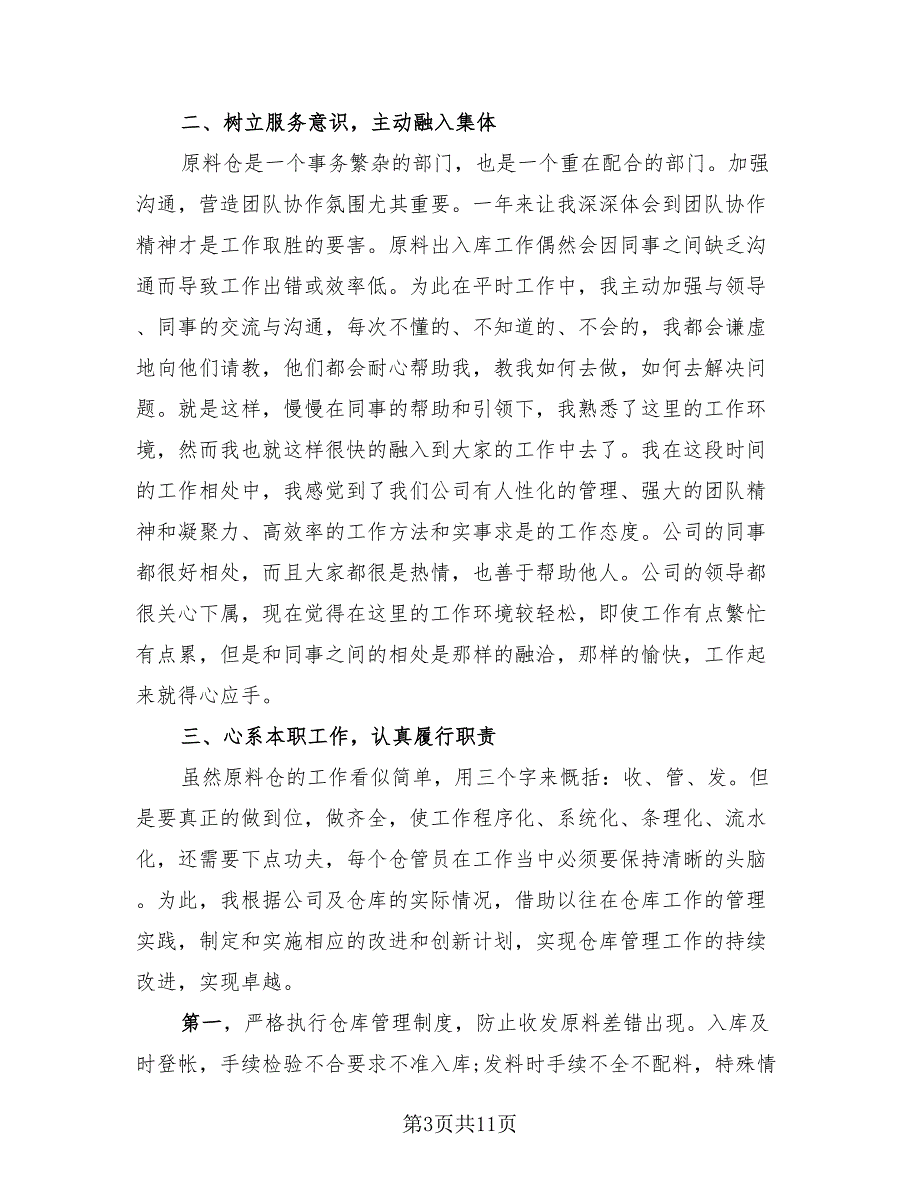 二、树立服务意识，主动融入集体
原料仓是一个事务繁杂的部门，也是一个重在配合的部门。加强
沟通，营造团队协作氛围尤其重要。一年来让我深深体会到团队协作
精神才是工作取胜的要害。原料出入库工作偶然会因同事之间缺乏沟
通而导致工作出错或效率低。为此在平时工作中，我主动加强与领导
、同事的交流与沟通，每次不懂的、不知道的、不会的，我都会谦虚
地向他们请教，他们都会耐心帮助我，教我如何去做，如何去解决问
题。就是这样，慢慢在同事的帮助和引领下，我熟悉了这里的工作环
境，然而我也就这样很快的融入到大家的工作中去了。我在这段时间
的工作相处中，我感觉到了我们公司有人性化的管理、强大的团队精
神和凝聚力、高效率的工作方法和实事求是的工作态度。公司的同事
都很好相处，而且大家都很是热情，也善于帮助他人。公司的领导都
很关心下属，现在觉得在这里的工作环境较轻松，即使工作有点繁忙
有点累，但是和同事之间的相处是那样的融洽，那样的愉快，工作起
来就得心应手。
三、心系本职工作，认真履行职责
虽然原料仓的工作看似简单，用三个字来慨括：收、管、发。但
是要真正的做到位，做齐全，使工作程序化、系统化、条理化、流水
化，还需要下点功夫，每个仓管员在工作当中必须要保持清晰的头脑
。为此，我根据公司及仓库的实际情况，借助以往在仓库工作的管理
实践，制定和实施相应的改进和创新计划，实现仓库管理工作的持续
改进，实现卓越。
第一，严格执行仓库管理制度，防止收发原料差错出现。入库及
时登帐，手续检验不合要求不准入库;发料时手续不全不配料，特殊情
第3页共11页